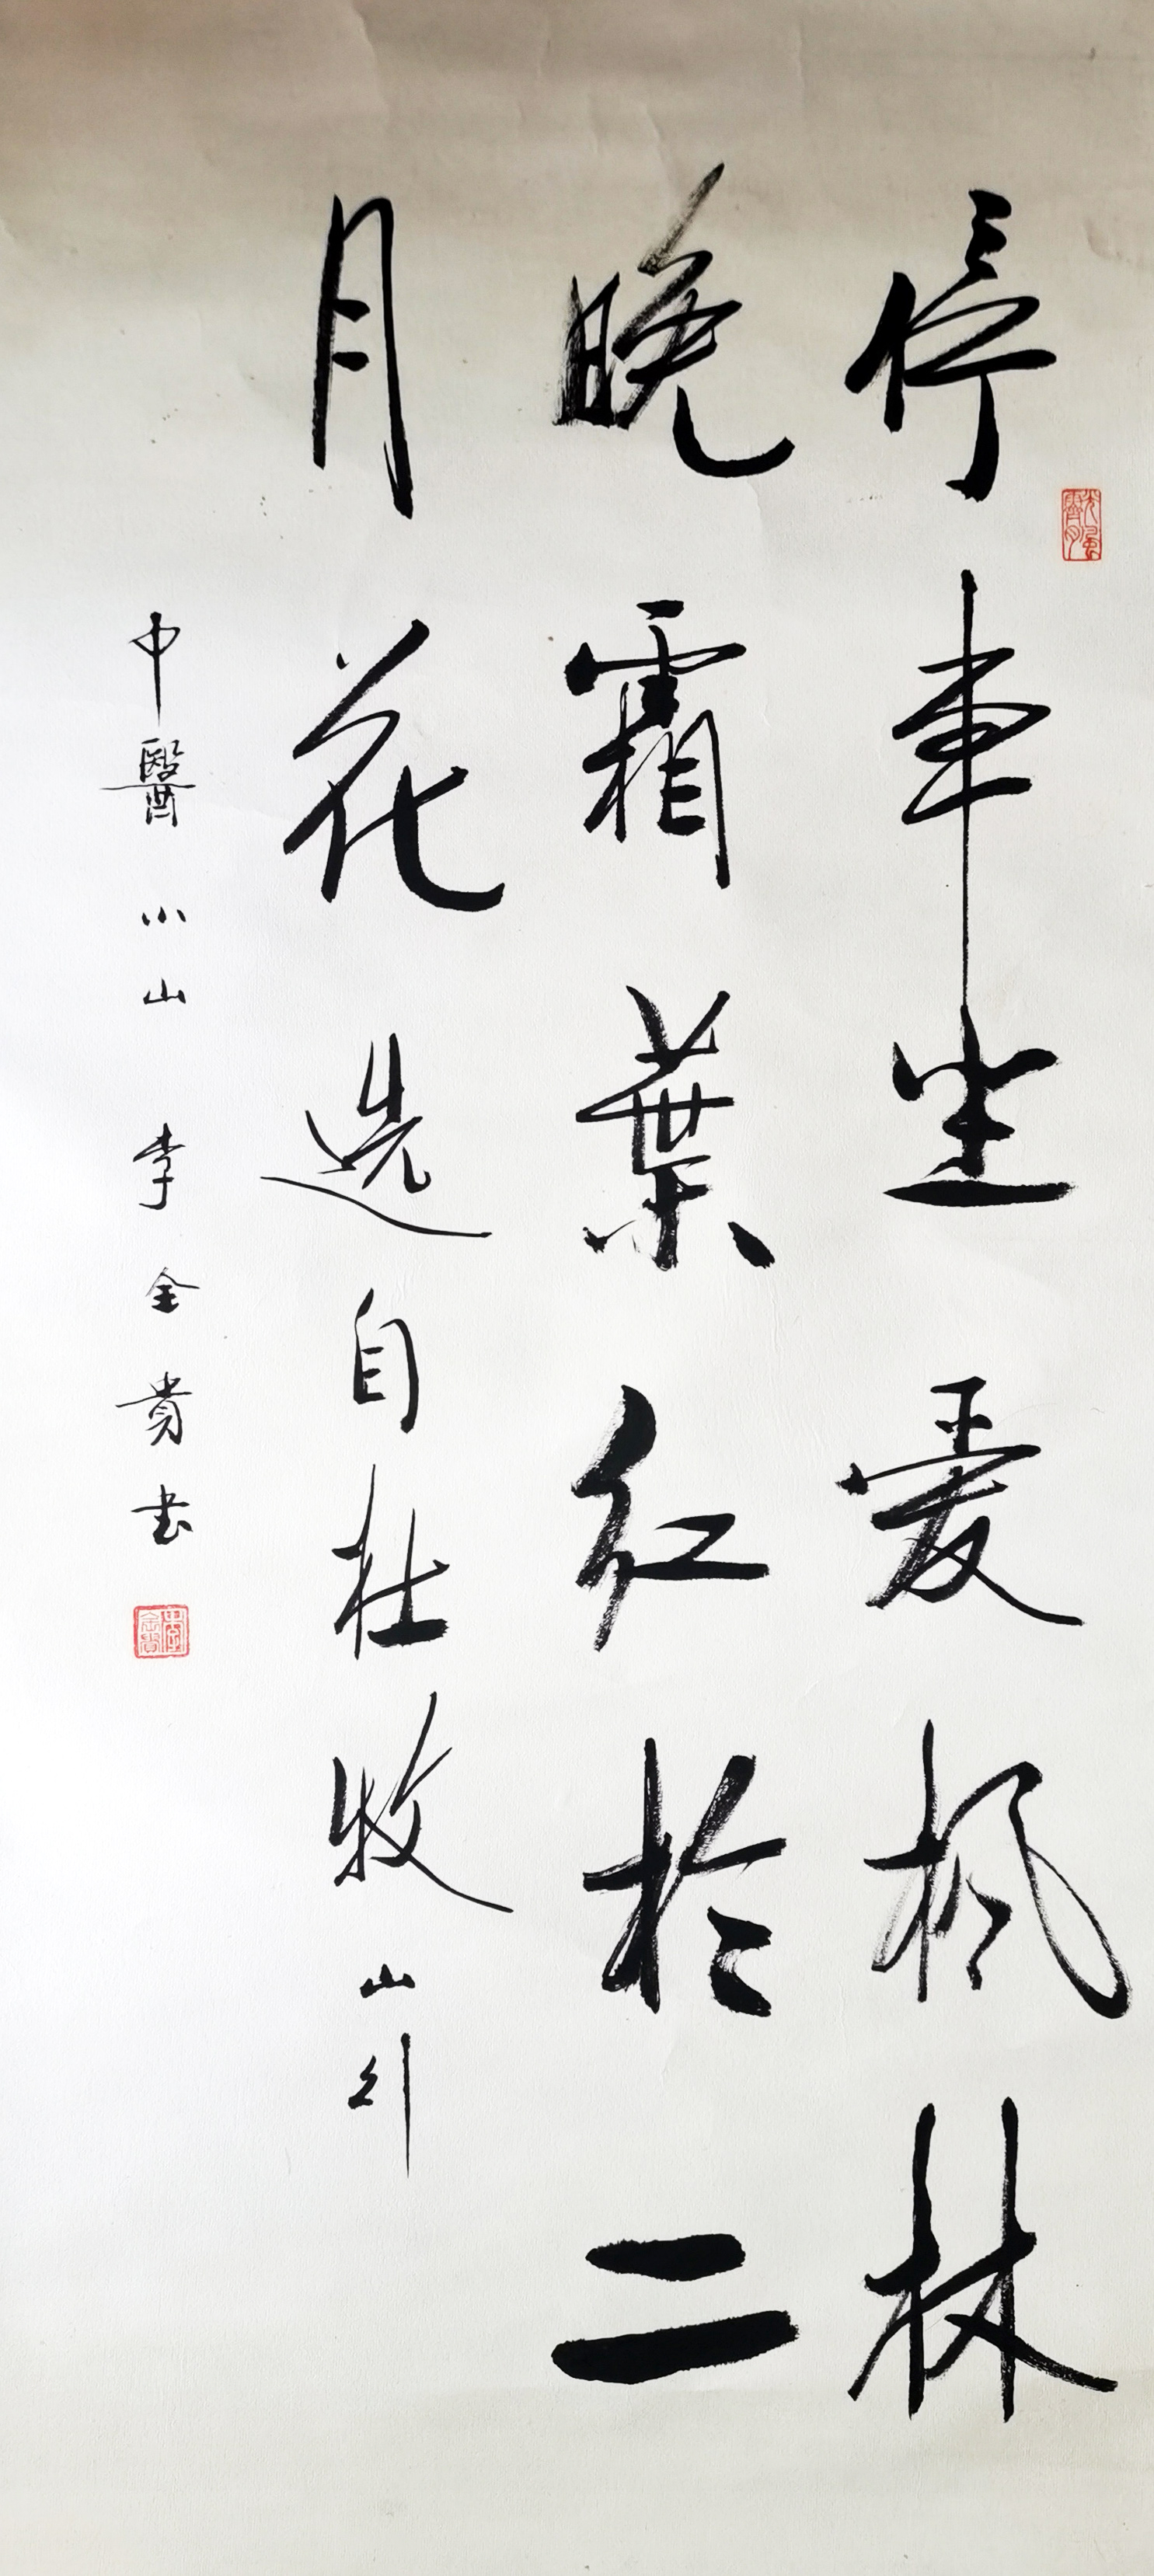 停車坐愛楓林
晚霜葉红於二
月花 选自杜牧山行
中醫小山 李全贵书